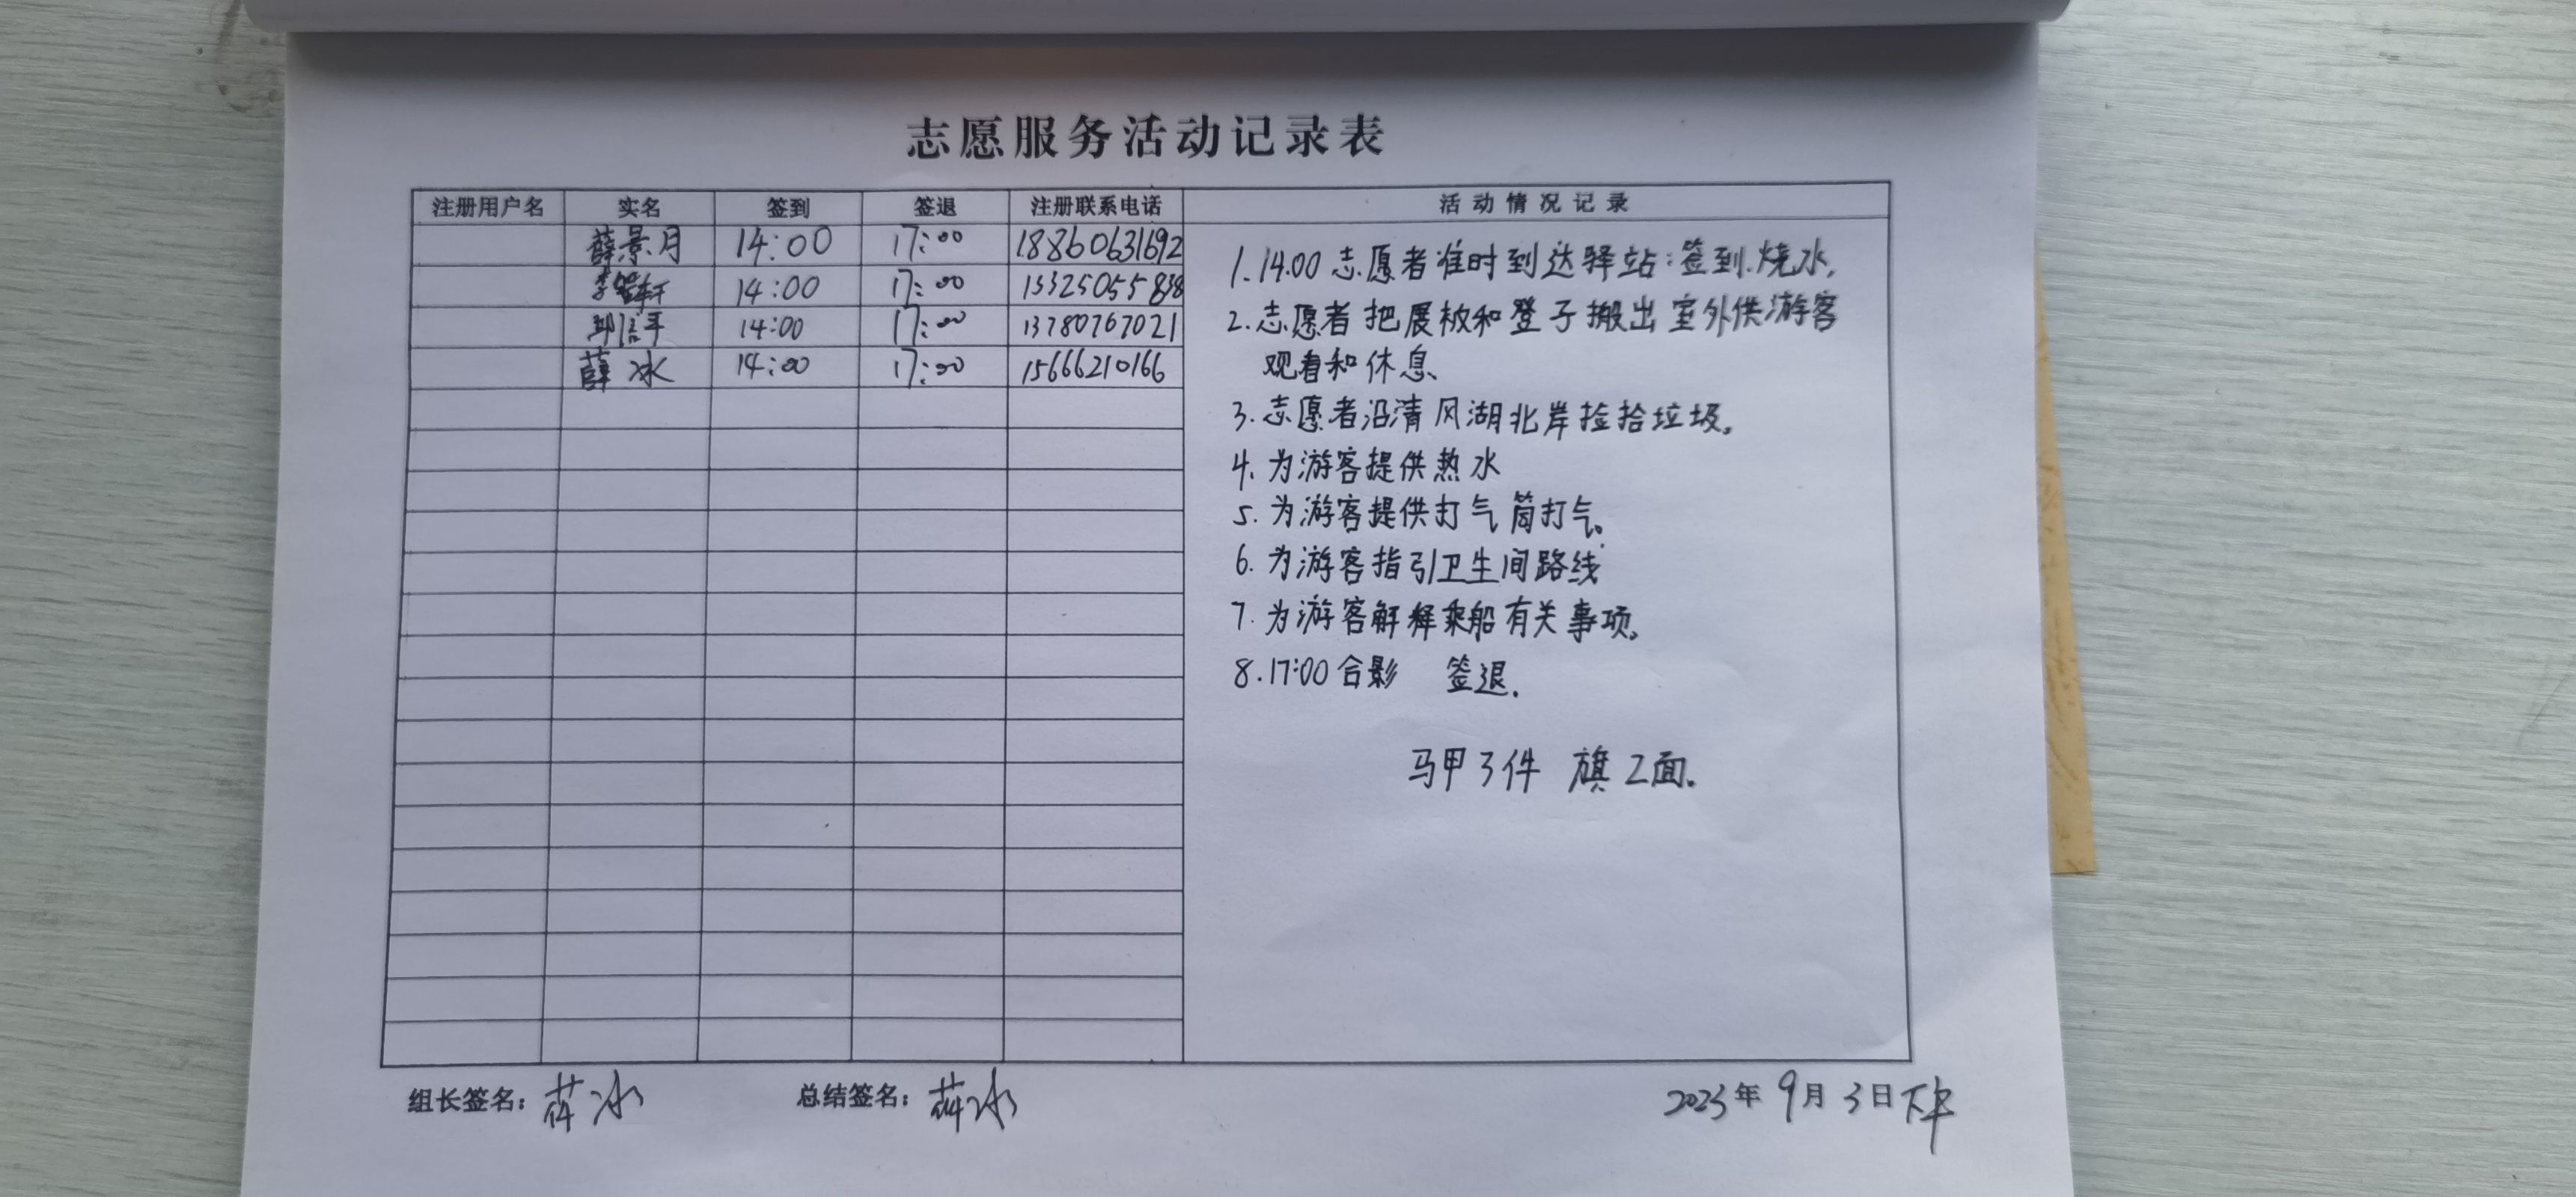 志愿服务活动记录表
注册用户名 实名 签到 签退 注册联系电话 活动情况记录
薛景月 14:00 17:00 18860631692
14:00 17:00 15325055838
邱信平 14:00 17:00 13780767021
薛冰 14:00 17:00 15666210166
1.14:00志愿者准时到达驿站:签到.烧水.
2.志愿者把展板和登子搬出室外供游客
观看和休息、
3.志愿者沿清风湖北岸捡拾垃圾。
4.为游客提供热水
5.为游客提供打气筒打气。
6.为游客指引卫生间路线
7.为游客解释乘船有关事项。
8.17:00合影 签退.
马甲3件 旗2面.
组长签名:薛冰 总结签名:薛冰 2023年9月3日下午